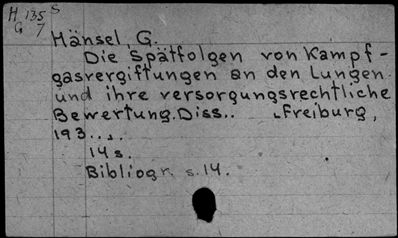 H 135 S
G 7
Hänsel, G.
Die Spätfolgen von Kampf-
gasvergiftungen an den Lungen
und ihre versorgungsrechtliche
Bewertung. Diss.. Freiburg,
193...
14 s.
Bibliogr. s. 14.